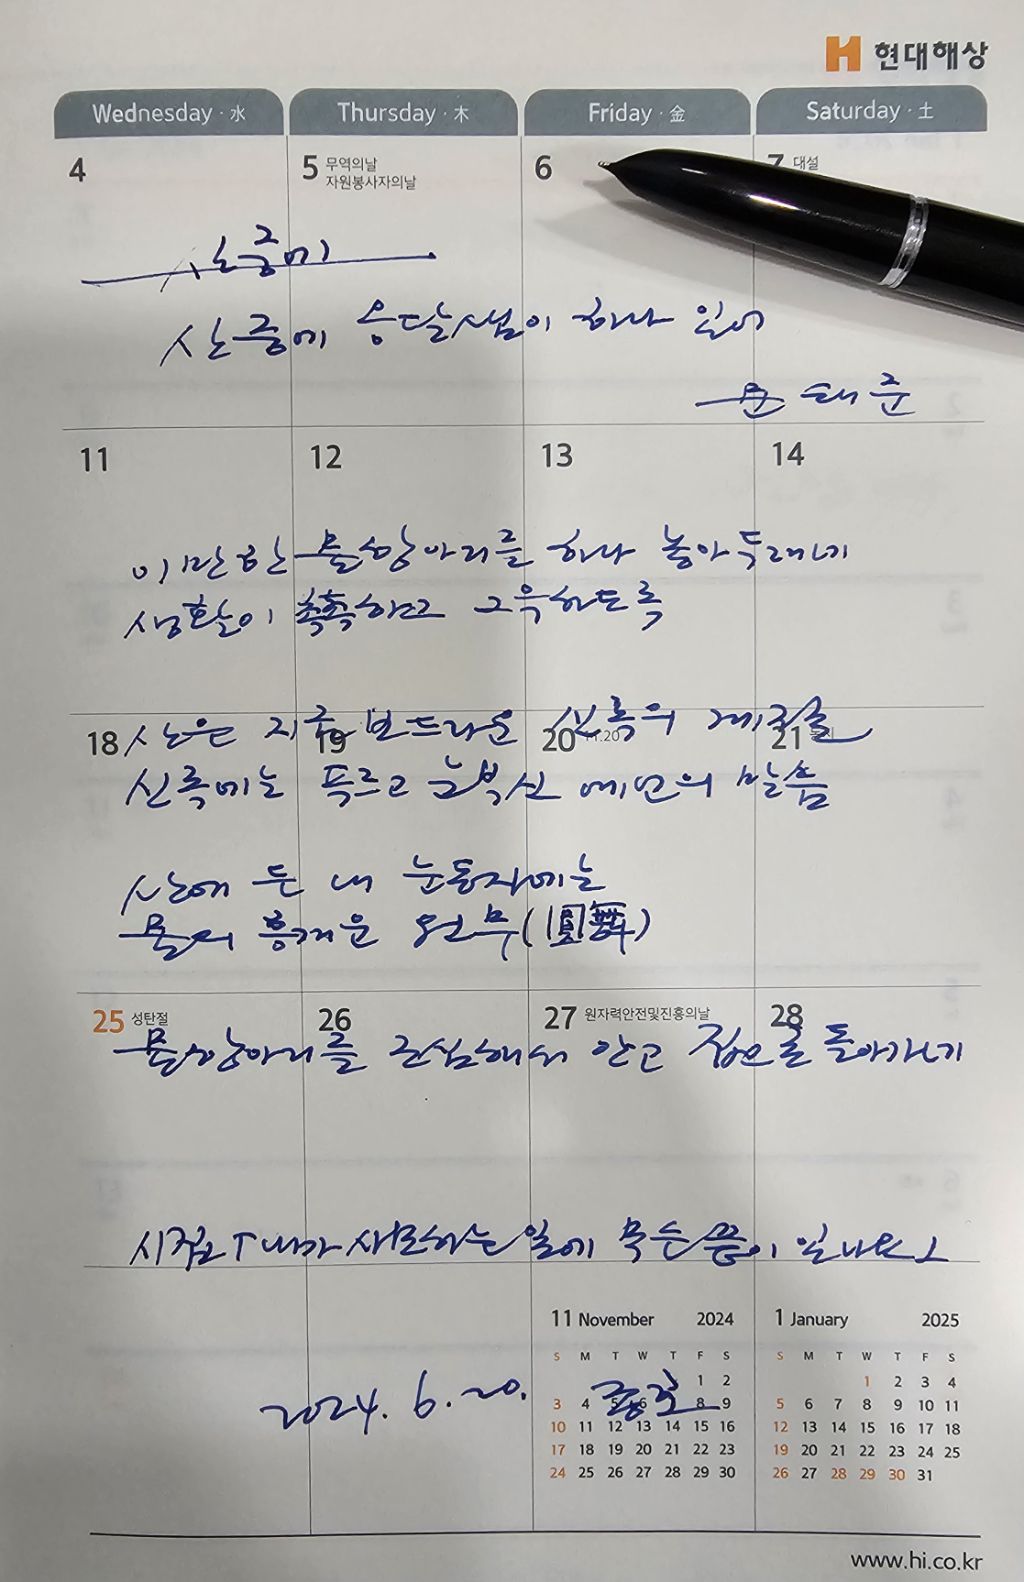 현대해상
Wednesday · 水 Thursday · 木 Friday · 金 Saturday · 土
4 5 무역의날 6 7 대설
자원봉사자의날
산중에
산중에 옹달샘이 하나 있어
문태준
11 12 13 14
이만한 물항아리를 하나 놓아두래니
생활이 촉촉하고 그윽하도록
18 19 20 21
산은 지금 보드라운 신록의 계절
신록에는 푸르고 눈부신 예언의 말씀
산에 든 내 눈동자에는
물의 흥겨운 원무(圓舞)
25 성탄절 26 27 원자력안전및진흥의날 28
물항아리를 조심해서 안고 집으로 돌아가니
11 November 2024 1 January 2025
S M T W T F S S M T W T F S
1 2 1 2 3 4
3 4 5 6 8 9 5 6 7 8 9 10 11
10 11 12 13 14 15 16 12 13 14 15 16 17 18
17 18 19 20 21 22 23 19 20 21 22 23 24 25
24 25 26 27 28 29 30 26 27 28 29 30 31
2024. 6. 20.
www.hi.co.kr